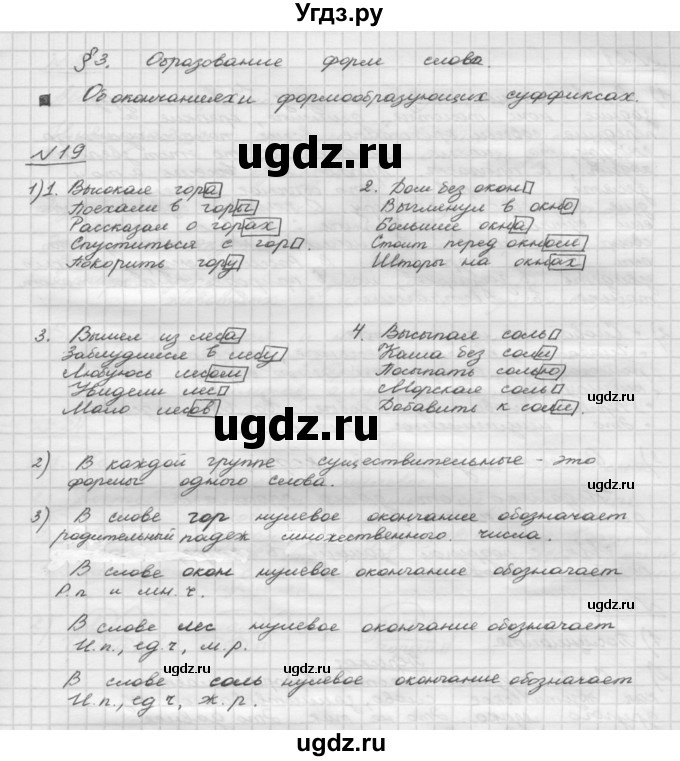 Угдз.ру
§3. Образование форм слова.
Об окончаниях и формообразующих суффиксах.
ugdz.ru
№19
1) 1. Высокая гора
Поехали в горы
Рассказал о горах
Спуститься с гор.
Покорить гору
2. Дом без окон
Выглянул в окно
Большие окна
Стоит перед окном
Шторы на окнах
3. Вышел из леса
Заблудился в лесу
Любуюсь лесом
Увидели лес
Мало лесов
4. Высыпал соль
Каша без соли
Посыпать солью
Морская соль
Добавить к соли.
ugdz.ru
ugdz.ru
2) В каждой группе существительные - это
формы одного слова.
ugdz.ru
3) В слове гор нулевое окончание обозначает
родительный падеж множественного числа.
В слове окон нулевое окончание обозначает
Р.п и мн.ч.
ugdz.ru
В слове лес нулевое окончание обозначает
И.п., ед.ч, м.р.
ugdz.ru
ugdz.ru
В слове соль нулевое окончание обозначает
И.п., ед.ч, ж.р.
ugdz.ru